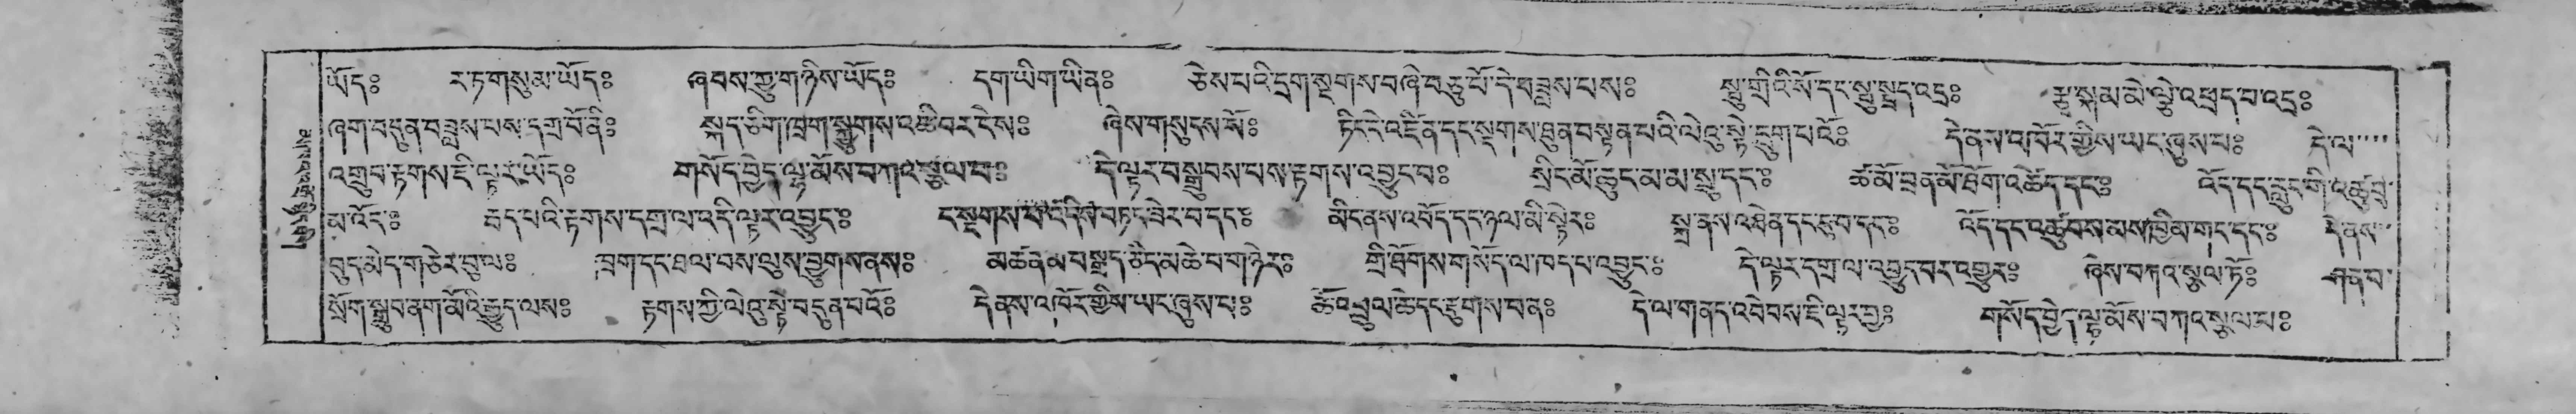 ཡོད༔ ར་ཏ་གསུམ་ཡོད༔ ཞབས་ཀྱུ་གཉིས་ཡོད༔ དག་ཡིག་ཡིན༔ ཅེས་པའི་དྲག་སྔགས་བཞི་བཅུ་པོ་དེ་བཟླས་པས༔ སྤུ་གྲིའི་སོ་དང་སྤུ་སྤྲད་འདྲ༔ རྩྭ་སྐམ་མེ་ལྕེ་འཕྲད་པ་འདྲ༔
ཞག་བདུན་བཟླས་པས་དགྲ་བོ་ནི༔ སྐད་ཅིག་ཁྲག་སྐྱུགས་འཆི་བར་ངེས༔ ཞེས་གསུངས་སོ༔ ཏིང་ངེ་འཛིན་དང་སྔགས་ཐུན་བསྟན་པའི་ལེའུ་སྟེ་དྲུག་པའོ༔ དེ་ནས་འཁོར་གྱིས་ཡང་ཞུས་པ༔ དེ་ལ་
འགྲུབ་རྟགས་ཇི་ལྟར་ཡོད༔ གསོད་བྱེད་ལྷ་མོས་བཀའ་སྩལ་པ༔ དེ་ལྟར་བསྒྲུབས་པས་རྟགས་འབྱུང་བ༔ སྲིང་མོ་ཆུང་མ་མ་སྲུ་དང༔ ཚ་མོ་བྲན་མོ་ཐོག་འཆོད་དང༔ འོད་དང་རླུང་གི་འཚུབ་
མ་འོང༔ རྒད་པའི་རྟགས་དགྲ་ལ་འདི་ལྟར་འབྱུང༔ ང་སྔགས་པ་ངོ་དེས་བཏང་ཟེར་བ་དང༔ མིང་ནས་འབོད་དང་ཉལ་མི་སྟེར༔ སྐྲ་ནས་འཐེན་དང་ དང༔ འོད་དང་འཚུབས་མས་ཁྱིམ་གང་དང༔ དེ་ནས་
བུད་མེད་གཅེར་བུ་ལ༔ ཁྲག་དང་ཐལ་བས་ལུས་བྱུགས་ནས༔ མཚན་མ་བསྒྲད་ཅིང་མཆེ་བ་གཉེར༔ གྲི་ཐོགས་གསོད་ལ་ཁད་པ་འབྱུང༔ དེ་ལྟར་དགྲ་ལ་འབྱུང་བར་འགྱུར༔ ཞེས་བཀའ་སྩལ་ཏོ༔ གནག་
སྲོག་སྒྲུབ་ནག་མོའི་རྒྱུད་ལས༔ རྟགས་ཀྱི་ལེའུ་སྟེ་བདུན་པའོ༔ དེ་ནས་འཁོར་གྱིས་ཡང་ཞུས་པ༔ ཆོ་འཕྲུལ་ཆེ་དང་རྫུགས་བན༔ དེ་ལ་གནད་འབེབས་ཇི་ལྟར་བྱ༔ གསོད་བྱེད་ལྷ་མོས་བཀའ་སྩལ་པ༔